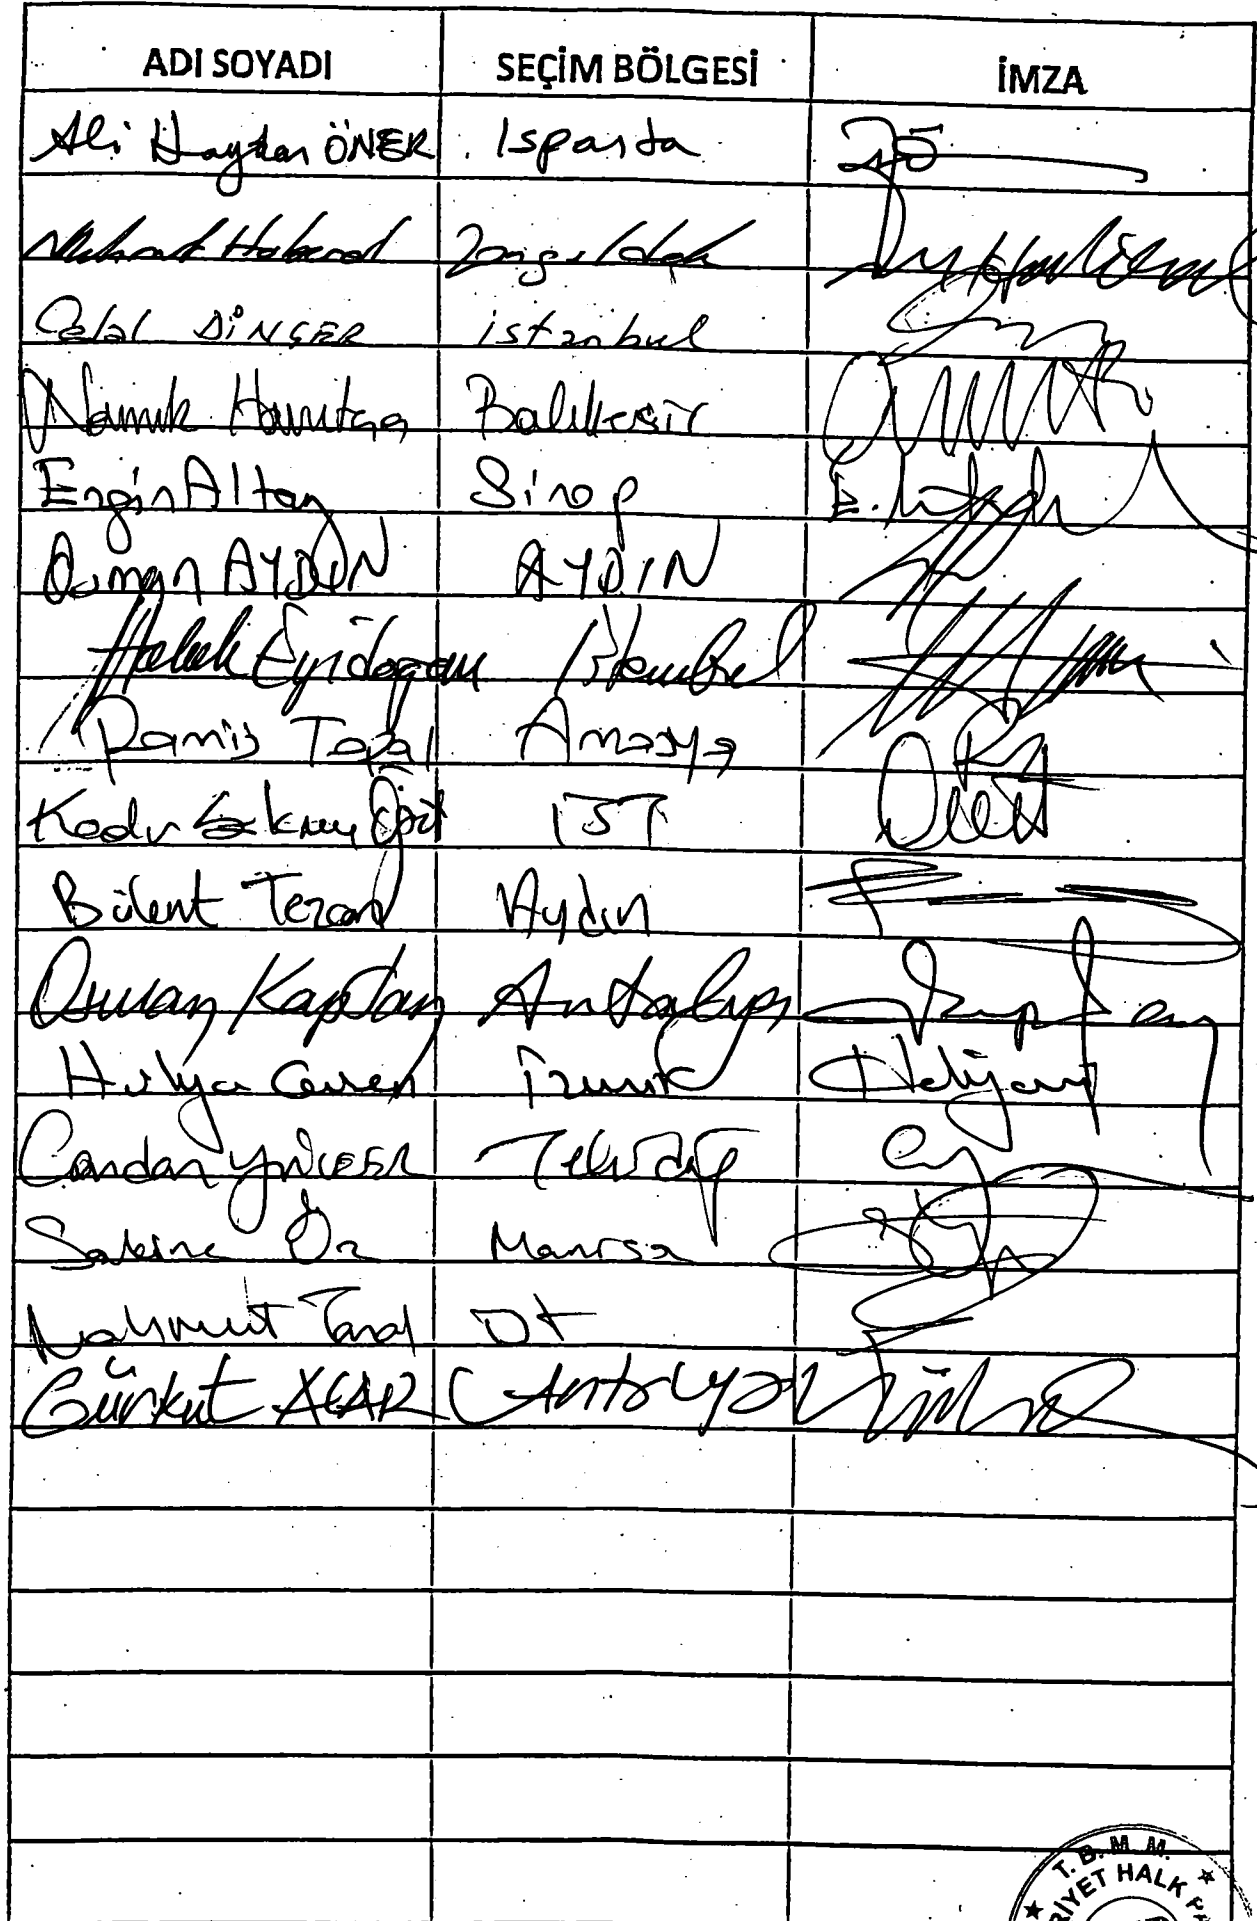 ADI SOYADI SEÇİM BÖLGESİ İMZA
Ali Haydar ÖNER Isparta
Mehmet Haberal Zonguldak
Celal DİNÇER istanbul
Namık Havutça Balıkesir
Engin Altay Sinop E.
Osman AYDIN AYDIN
Haluk Eyidoğan İstanbul
Ramis Topal Amasya
Kadir Öğüt İST
Bülent Tezcan Aydın
Osman Kaptan Antalya
Hülya Güven İzmir
Candan YÜCEER Tekirdağ
Sakine Öz Manisa
Mahmut Tanal
Gürkut ACAR Antalya
T. B. M. M.
RİYET HALK PA